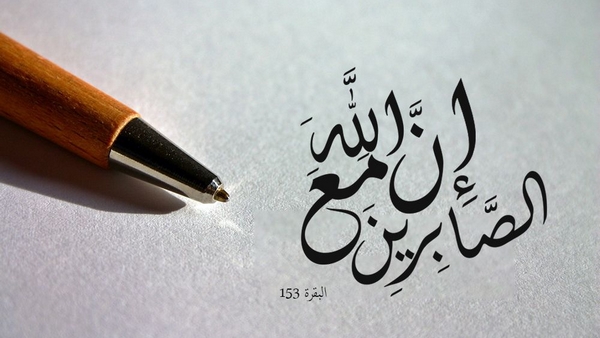 إِنَّ اللَّهَ مَعَ
الصَّابِرِينَ
البقرة 153